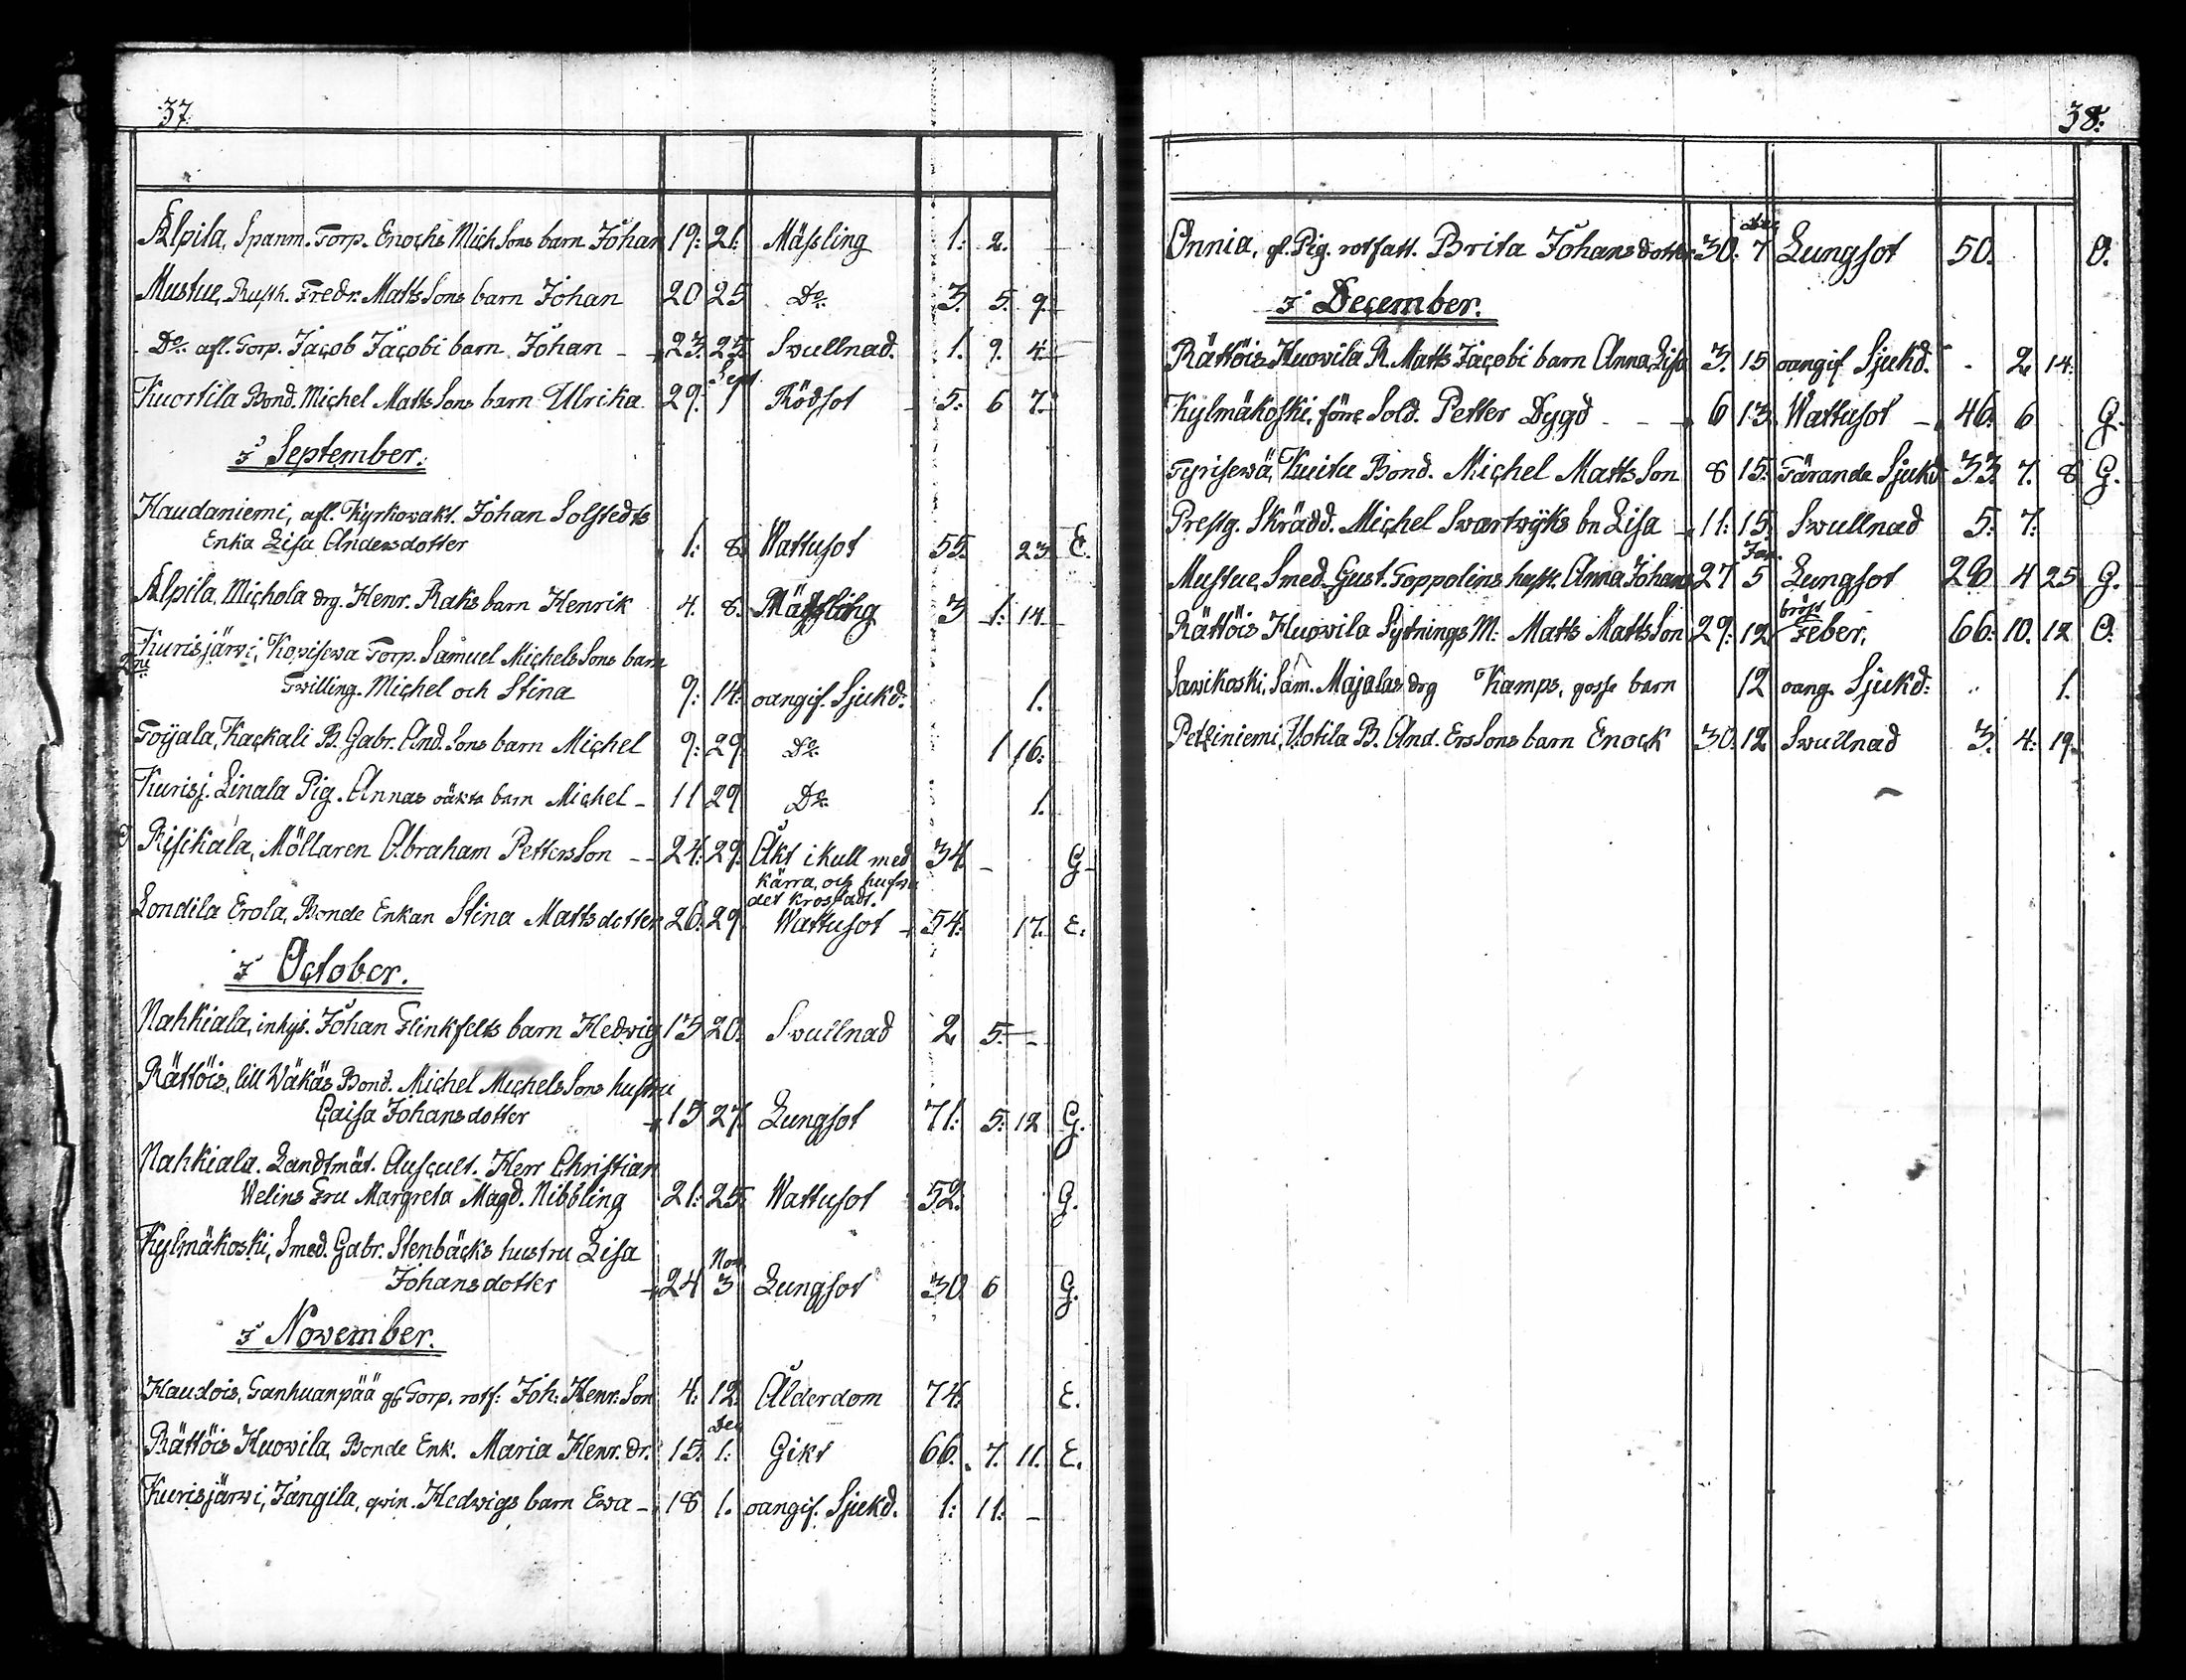 37.
Alpila, Spanm. Torp. Enochs Mich Sons barn Johan 19: 21: Mässling 1: 2.
Mustue, Rusth. Fredr. Matts Sons barn Johan 20 25 Do: 3. 5. 9.
Do: afl. Torp. Jacob Jacobi barn Johan 23. 25. Swullnad. 1. 9. 4
Sept
Kuortila Bond. Michel Matts Sons barn Ulrika 29. 1 Rödsot 5. 6 7.
I September.
Haudaniemi, afl. Kyrkowakt. Johan Solstedts
Enka Lisa Andersdotter 1: 8. Wattusot 55. 23. E.
Alpila, Michola drg. Henr. Raks barn Henrik 4. 8. Mässling 3 1: 14
Kurisjärwi, Kovisewa Torp. Samuel Michels Sons barn
2ne
Twilling. Michel och Stina 9: 14: oangif. Sjukd: 1.
Toijala, Kackali B. Gabr. And. Sons barn Michel 9: 29 Do: 1 16:
Kurisj. Linala Pig. Annas oäkta barn Michel 11 29 Do: 1.
Risikala, Möllaren Abraham Petters Son 24: 29. Åkt ikull med 34. G
kärra, och hufwu
det krossadt.
Londila Erola, Bonde Enkan Stina Mattsdotter 26. 29. Wattusot 54: 17. E.
I October.
Nahkiala, inhys. Johan Flinkfelts barn Hedwig 15 20. Swullnad 2 5.
Rättöis, lill Wäkäs Bond. Michel Michels Sons hustru
Caisa Johansdotter 15 27. Lungsot 71: 5: 12 G.
Nahkiala. Landtmät. Auscult. Herr Christian
Welins Fru Margreta Magd. Nibbling 21: 25. Wattusot 52. G.
Kylmäkoski, Smed. Gabr. Stenbäcks hustru Lisa
Nov
Johansdotter 24 3 Lungsot 30. 6 G.
I November.
Haudois, Tanhuanpää gf. Torp. rotf: Joh: Henr: Son 4: 12. Ålderdom 74. E.
Dec
Rättöis Huovila, Bonde Enk. Maria Henr. dr. 15. 1: Gikt 66. 7. 11. E.
Kurisjärwi, Jangila, qvin. Hedwigs barn Ewa 18 1. oangif. Sjukd. 1: 11:
38:
Dec
Onnia, gl. Pig. rotfatt. Brita Johansdotter 30. 7 Lungsot 50. O.
I December.
Rättöis Huovila R. Matts Jacobi barn Anna Lisa 3. 15 oangif Sjukd. 2 14:
Kylmäkoski, förre Sold. Petter Dygd 6 13 Wattusot 46. 6 G.
Tyrisewä, Kuitu Bond. Michel Matts Son 8 15. Tärande Sjukd 33. 7. 8 G.
Prestg. Skrädd. Michel Swartwijks bn Lisa 11: 15. Swullnad 5: 7:
Jan.
Mustue, Smed. Gust. Toppolins hust. Anna Johans 27 5 Lungsot 29. 4 25 G.
bröst
Rättöis Huovila Sytnings M: Matts Matts Son 29: 12 Feber, 66: 10. 12 O.
Sawikoski, Sam. Majalas drg Kamps, gosse barn 12 oang. Sjukd: 1.
Petziniemi, Uotila B. And. Ers Sons barn Enock 30. 12 Swullnad 3. 4: 19.